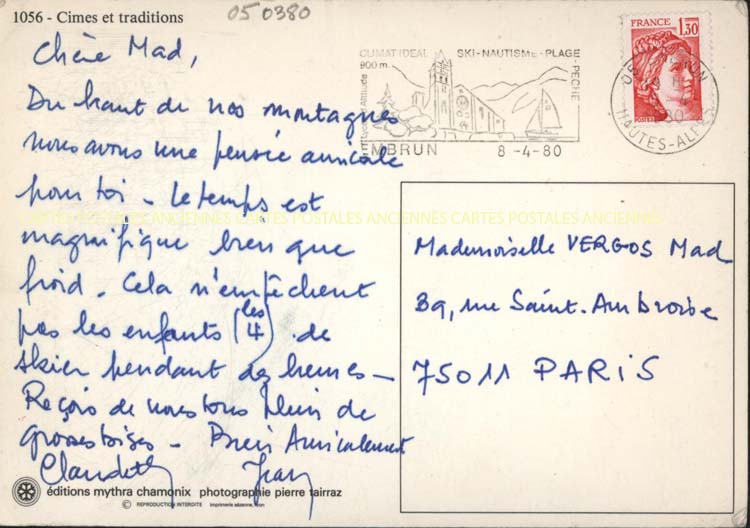 1056 - Cimes et traditions
050380
Chère Mad,
Du haut de nos montagnes
nous avons une pensée amicale
pour toi - Le temps est
magnifique bien que
froid. Cela n'empêchent
pas les enfants (les 4) de
skier pendant des heures -
Reçois de nous tous plein de
grosses bises - Bien Amicalement
Claudette Jean
éditions mythra chamonix photographie pierre tairraz
© REPRODUCTION INTERDITE imprimerie sézanne, lyon
CLIMAT IDEAL SKI-NAUTISME-PLAGE-PECHE
900 m. Altitude
EMBRUN 8-4-80
FRANCE
1,30
POSTES
HAUTES-ALPES
CARTES POSTALES ANCIENNES CARTES POSTALES ANCIENNES
Mademoiselle VERGOS Mad
39, rue Saint-Ambroise
75011 PARIS